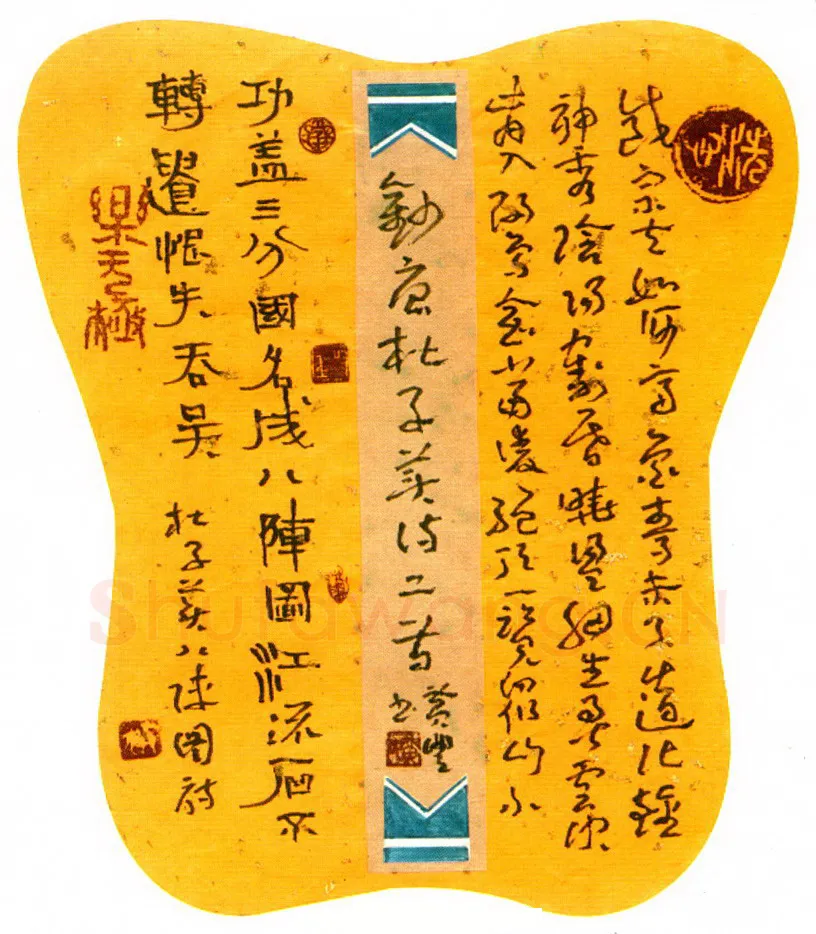 岱宗夫如何齊魯青未了造化鍾
神秀陰陽割昏曉盪胸生曾雲決
眥入歸鳥會當凌絕頂一覽衆山小
鈔唐杜子美诗二首
书
功盖三分國名成八陣圖江流石不
轉遺恨失吞吴 杜子美八陣圖詩
樂无極
ShufaWang.CN